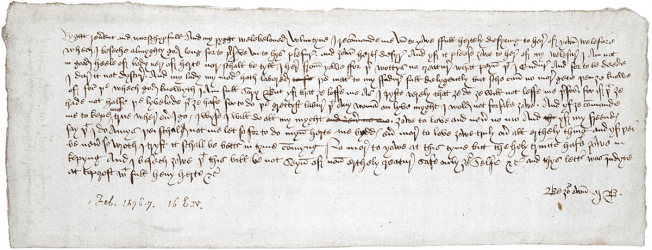 Ryght reverent and wurschypfull and my ryght welebeloved Voluntyne I recomande me vn to yowe ffull hertely desyring to here of yowr welefare
whech I beseche almyghty god long for to pserve vn to hys plesur and yowr herts desyre And yf it please yowe to here of my welefar I am not
in good heele of body ner of herte nor schall be tyll I here from yowe ffor ther wottys no creatur what peyn yt I endur And for to be deede
I dur it not dyscur And my lady my moder hath labored ye mater to my ffadur full delygently but sche can no mor gete yen ye knowe
of for ye whech god knowyth I am full sory But yf that ye loffe me as I tryste verely that ye do ye will not leffe me ther for for if yt ye
hade not halfe ye lyvelode yt ye hafe for to do ye grettyst labur yt any woman on lyve myght I wold not forsake yowe And yf ye comande
me to kepe me true wher eu I go I wyse I will do all my myght yowe to love and neu no mo And yf my ffreends
say yt I do Amys yei schal not me let so for to do myn herte me bydds eu mor to love yowe truly ou all erthely thing And yf yei
be neu so wroth I tryst it schall be bettr in tyme comyng No mor to yowe at this tyme but the holy trinite hafe yowe in
kepyng And I besech yowe yt this bill be not seyn of non erthely creatur safe only yor selfe &c And thys lettr was indyte
at topcroft wt full heuy herte &c
Be yor own M B
Feb. 1476-7. 16 E. IV.